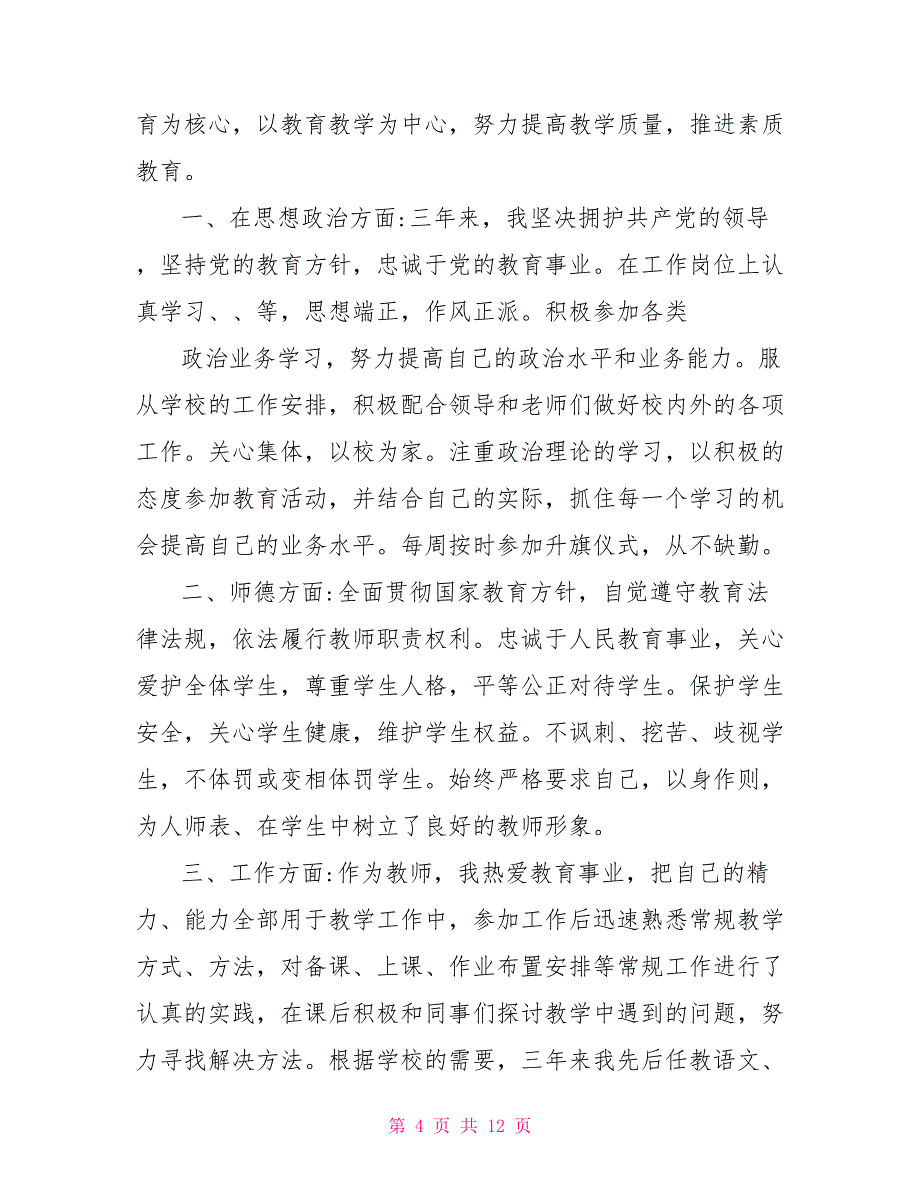 育为核心，以教育教学为中心，努力提高教学质量，推进素质
教育。
一、在思想政治方面:三年来，我坚决拥护共产党的领导
，坚持党的教育方针，忠诚于党的教育事业。在工作岗位上认
真学习、、等，思想端正，作风正派。积极参加各类
政治业务学习，努力提高自己的政治水平和业务能力。服
从学校的工作安排，积极配合领导和老师们做好校内外的各项
工作。关心集体，以校为家。注重政治理论的学习，以积极的
态度参加教育活动，并结合自己的实际，抓住每一个学习的机
会提高自己的业务水平。每周按时参加升旗仪式，从不缺勤。
二、师德方面:全面贯彻国家教育方针，自觉遵守教育法
律法规，依法履行教师职责权利。忠诚于人民教育事业，关心
爱护全体学生，尊重学生人格，平等公正对待学生。保护学生
安全，关心学生健康，维护学生权益。不讽刺、挖苦、歧视学
生，不体罚或变相体罚学生。始终严格要求自己，以身作则，
为人师表、在学生中树立了良好的教师形象。
三、工作方面:作为教师，我热爱教育事业，把自己的精
力、能力全部用于教学工作中，参加工作后迅速熟悉常规教学
方式、方法，对备课、上课、作业布置安排等常规工作进行了
认真的实践，在课后积极和同事们探讨教学中遇到的问题，努
力寻找解决方法。根据学校的需要，三年来我先后任教语文、
第 4 页 共 12 页